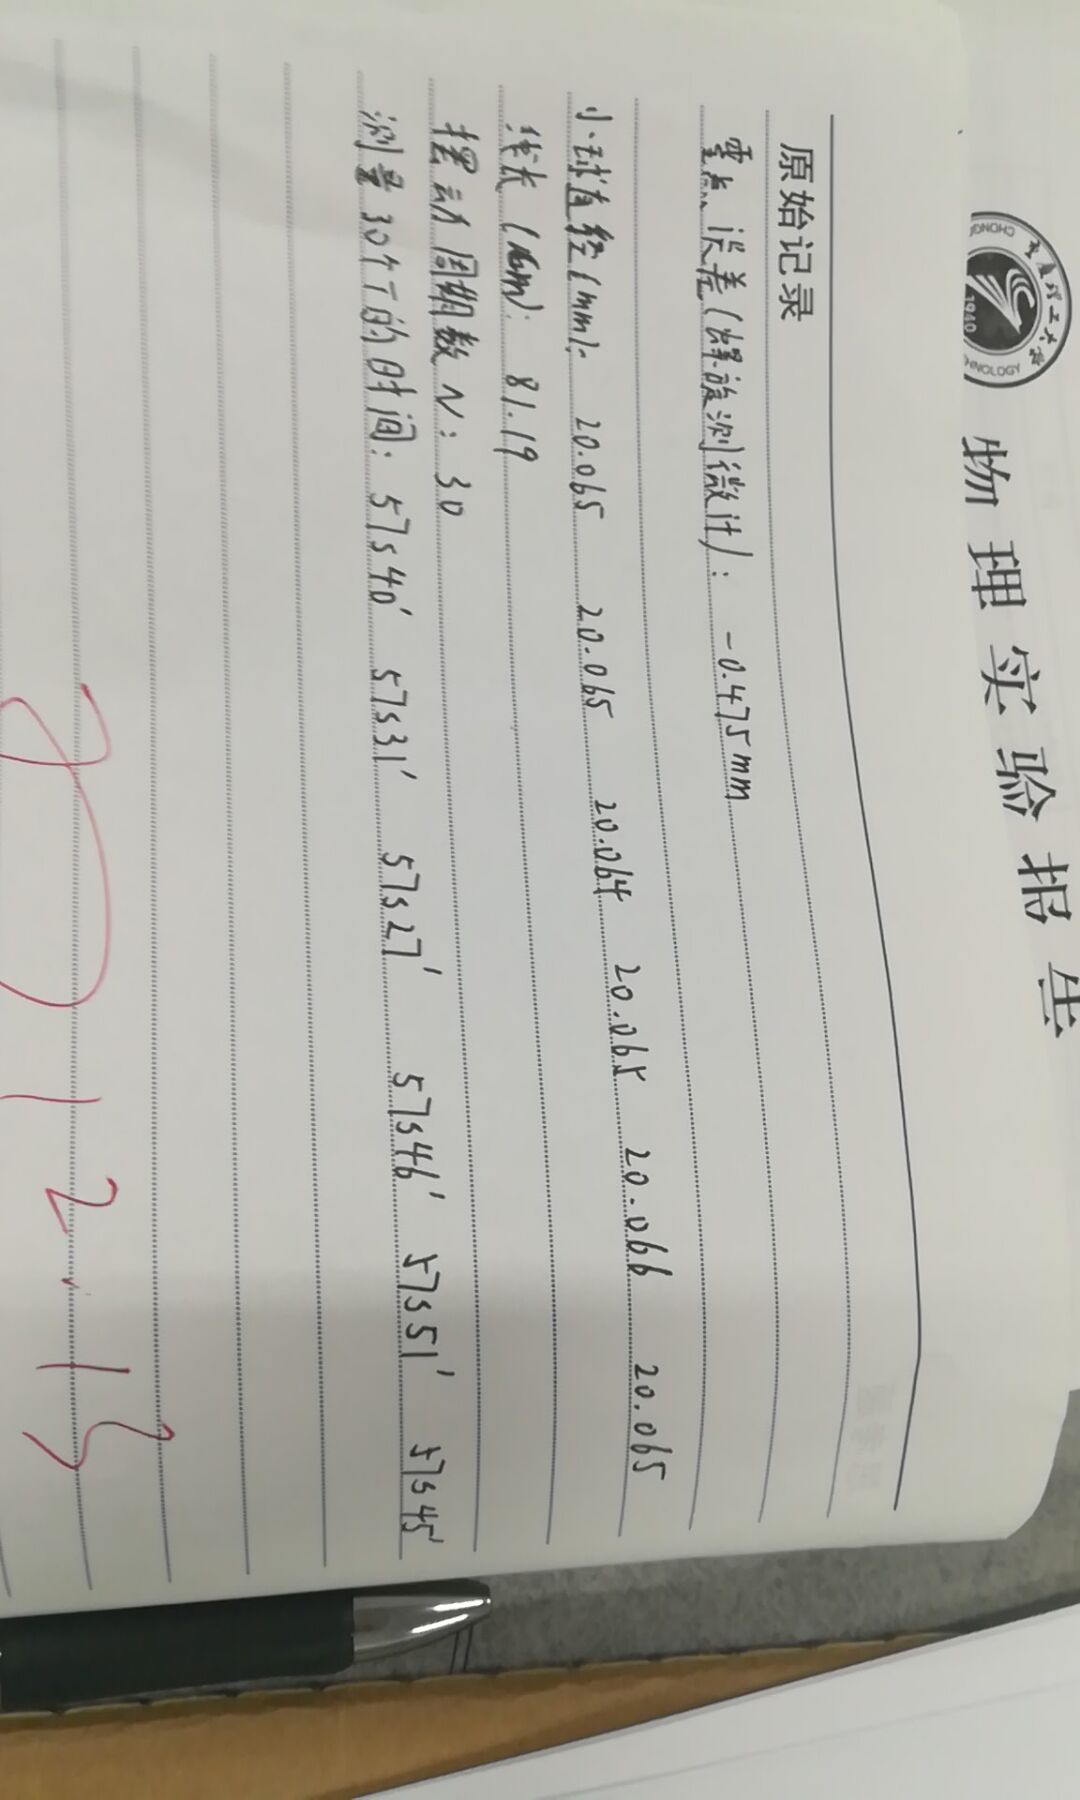 物理实验报告
1940
原始记录
零点误差(螺旋测微计): -0.475mm
小球直径(mm): 20.065 20.065 20.064 20.065 20.066 20.065
线长(cm): 81.19
摆动周期数N: 30
测量30个T的时间: 57s40′ 57s31′ 57s27′ 57s46′ 57s51′ 57s45′
12.13